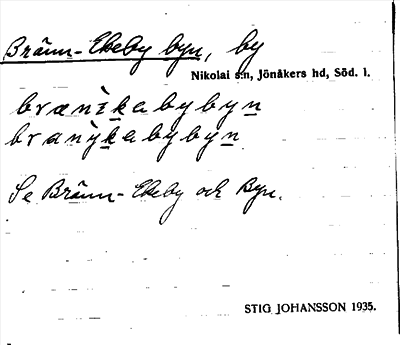 Bränn-Ekeby byn, by
Nikolai s:n, Jönåkers hd, Söd. l.
brænìkabybyn
branỳkabybyn
Se Bränn-Ekeby och Byn.
STIG JOHANSSON 1935.